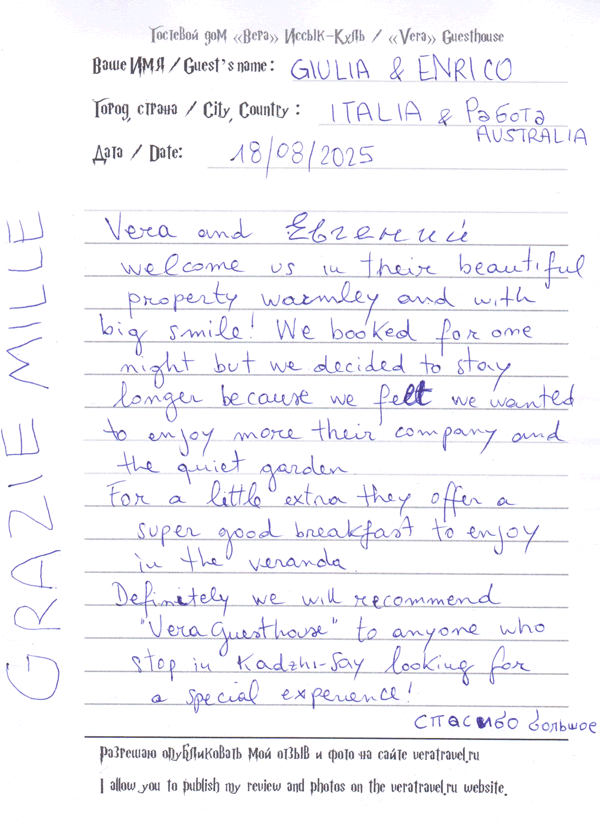 Гостевой дом «Вера» Иссык-Куль / «Vera» Guesthouse
Ваше ИМЯ / Guest's name: GIULIA & ENRICO
Город, страна / City, Country: ITALIA & Работа
AUSTRALIA
Дата / Date: 18/08/2025
GRAZIE MILLE
Vera and Евгений
welcome us in their beautiful
property warmley and with
big smile! We booked for one
night but we decided to stay
longer because we felt we wanted
to enjoy more their company and
the quiet garden.
For a little extra they offer a
super good breakfast to enjoy
in the veranda.
Definetely we will recommend
"Vera Guesthouse" to anyone who
stop in Kadzhi-Say looking for
a special experience!
спасибо большое
Разрешаю опубликовать мой отзыв и фото на сайте veratravel.ru
I allow you to publish my review and photos on the veratravel.ru website.